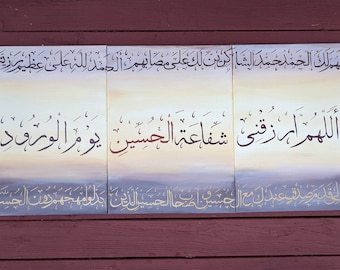 اللهم لك الحمد حمد الشاكرين لك على مصابهم الحمد لله على عظيم رزيتي
اللهم ارزقني شفاعة الحسين يوم الورود
الحسين واصحاب الحسين الذين بذلوا مهجهم دون الحسين